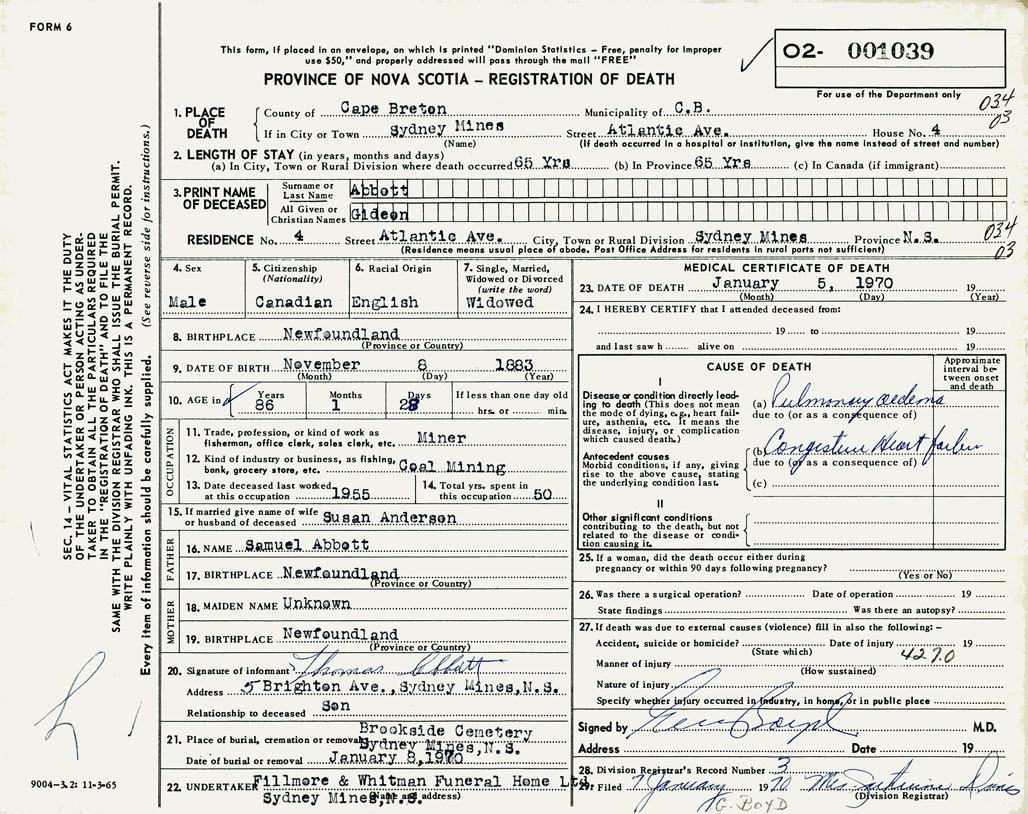 FORM 6
This form, if placed in an envelope, on which is printed "Dominion Statistics – Free, penalty for improper
use $50," and properly addressed will pass through the mail "FREE"
PROVINCE OF NOVA SCOTIA – REGISTRATION OF DEATH
O2- 001039
For use of the Department only
034
03
1. PLACE OF DEATH County of Cape Breton Municipality of C.B.
If in City or Town Sydney Mines Street Atlantic Ave. House No. 4
(Name) (If death occurred in a hospital or institution, give the name instead of street and number)
2. LENGTH OF STAY (in years, months and days)
(a) In City, Town or Rural Division where death occurred 65 Yrs (b) In Province 65 Yrs (c) In Canada (if immigrant)
3. PRINT NAME OF DECEASED Surname or Last Name Abbott
All Given or Christian Names Gideon
RESIDENCE No. 4 Street Atlantic Ave. City, Town or Rural Division Sydney Mines Province N.S.
(Residence means usual place of abode. Post Office Address for residents in rural parts not sufficient)
034
03
4. Sex
Male
5. Citizenship
(Nationality)
Canadian
6. Racial Origin
English
7. Single, Married,
Widowed or Divorced
(write the word)
Widowed
8. BIRTHPLACE Newfoundland
(Province or Country)
9. DATE OF BIRTH November 8 1883
(Month) (Day) (Year)
10. AGE in Years Months Days If less than one day old
86 1 28 hrs. or min.
OCCUPATION
11. Trade, profession, or kind of work as
fisherman, office clerk, sales clerk, etc. Miner
12. Kind of industry or business, as fishing,
bank, grocery store, etc. Coal Mining
13. Date deceased last worked
at this occupation 1955
14. Total yrs. spent in
this occupation 50
15. If married give name of wife
or husband of deceased Susan Anderson
FATHER
16. NAME Samuel Abbott
17. BIRTHPLACE Newfoundland
(Province or Country)
MOTHER
18. MAIDEN NAME Unknown
19. BIRTHPLACE Newfoundland
(Province or Country)
20. Signature of informant Thomas Abbott
Address 5 Brighton Ave., Sydney Mines, N.S.
Relationship to deceased Son
21. Place of burial, cremation or removal Brookside Cemetery
Sydney Mines, N.S.
Date of burial or removal January 8, 1970
22. UNDERTAKER Fillmore & Whitman Funeral Home Ltd.
Sydney Mines, N.S.
(Name and address)
MEDICAL CERTIFICATE OF DEATH
23. DATE OF DEATH January 5, 1970 19
(Month) (Day) (Year)
24. I HEREBY CERTIFY that I attended deceased from:
19 to 19
and last saw h alive on 19
CAUSE OF DEATH
Approximate
interval be-
tween onset
and death
I
Disease or condition directly lead-
ing to death (This does not mean
the mode of dying, e.g., heart fail-
ure, asthenia, etc. It means the
disease, injury, or complication
which caused death.)
(a) Pulmonary Oedema
due to (or as a consequence of)
Antecedent causes
Morbid conditions, if any, giving
rise to the above cause, stating
the underlying condition last.
(b) Congestive Heart failure
due to (or as a consequence of)
(c)
II
Other significant conditions
contributing to the death, but not
related to the disease or condi-
tion causing it.
25. If a woman, did the death occur either during
pregnancy or within 90 days following pregnancy?
(Yes or No)
26. Was there a surgical operation? Date of operation 19
State findings Was there an autopsy?
27. If death was due to external causes (violence) fill in also the following: –
Accident, suicide or homicide? Date of injury 19
(State which) 4270
Manner of injury
(How sustained)
Nature of injury
Specify whether injury occurred in industry, in home, or in public place
Signed by Boyd M.D.
Address Date 19
28. Division Registrar's Record Number 3
29. Filed 7 January 1970 Mrs
(Division Registrar)
G. BOYD
SEC. 14 – VITAL STATISTICS ACT MAKES IT THE DUTY
OF THE UNDERTAKER OR PERSON ACTING AS UNDER-
TAKER TO OBTAIN ALL THE PARTICULARS REQUIRED
IN THE "REGISTRATION OF DEATH" AND TO FILE THE
SAME WITH THE DIVISION REGISTRAR WHO SHALL ISSUE THE BURIAL PERMIT.
WRITE PLAINLY WITH UNFADING INK. THIS IS A PERMANENT RECORD.
Every item of information should be carefully supplied. (See reverse side for instructions.)
9004-3.2: 11-3-65